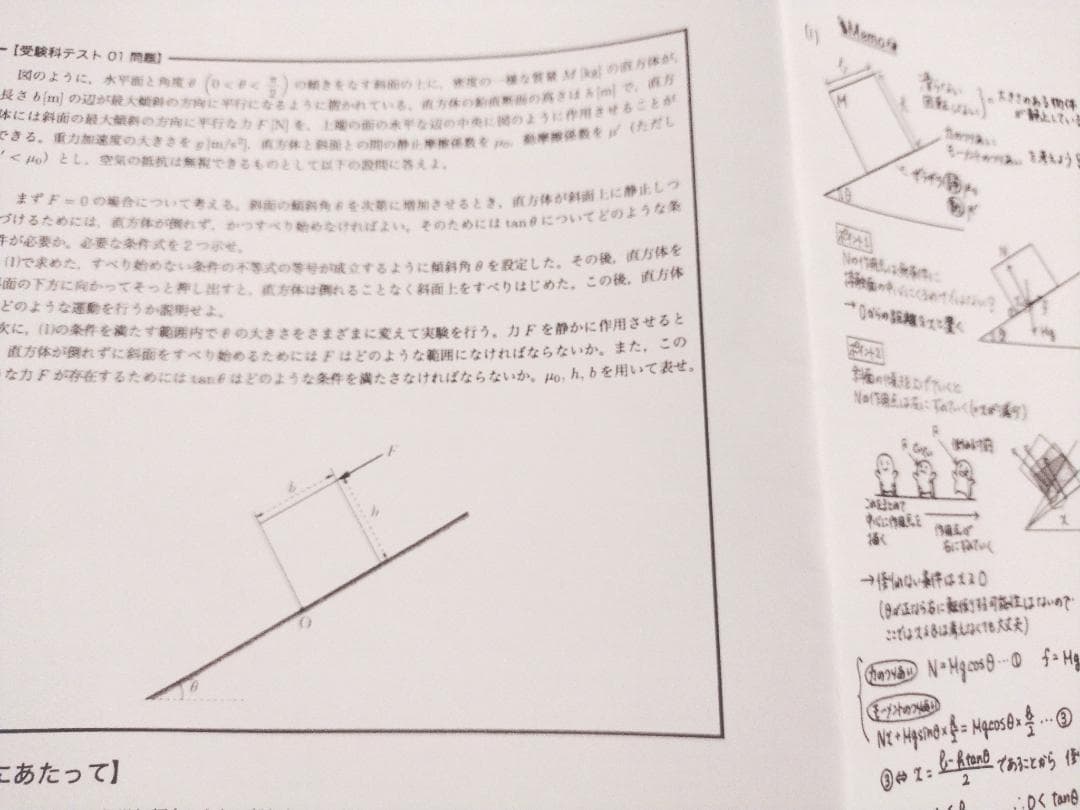 【受験科テスト 01 問題】
図のように，水平面と角度 θ (0 < θ < π/2) の傾きをなす斜面の上に，密度の一様な質量 M [kg] の直方体が，
長さ b[m] の辺が最大傾斜の方向に平行になるように置かれている。直方体の鉛直断面の高さは h[m] で，直方
体には斜面の最大傾斜の方向に平行な力 F [N] を，上端の面の水平な辺の中央に図のように作用させることが
できる。重力加速度の大きさを g[m/s²]，直方体と斜面との間の静止摩擦係数を μ₀，動摩擦係数を μ′（ただし
′ < μ₀）とし，空気の抵抗は無視できるものとして以下の設問に答えよ。
まず F = 0 の場合について考える。斜面の傾斜角 θ を次第に増加させるとき，直方体が斜面上に静止しつ
づけるためには，直方体が倒れず，かつすべり始めなければよい。そのためには tan θ についてどのような条
件が必要か。必要な条件式を2つ示せ。
(1)で求めた，すべり始めない条件の不等式の等号が成立するように傾斜角 θ を設定した。その後，直方体を
面の下方に向かってそっと押し出すと，直方体は倒れることなく斜面上をすべりはじめた。この後，直方体
どのような運動を行うか説明せよ。
次に，(1)の条件を満たす範囲内で θ の大きさをさまざまに変えて実験を行う。力 F を静かに作用させると
直方体が倒れずに斜面をすべり始めるためには F はどのような範囲になければならないか。また，この
うな力 F が存在するためには tan θ はどのような条件を満たさなければならないか。μ₀, h, b を用いて表せ。
F
b
h
O
θ
にあたって】
(1) Memo
M
θ
すべらない
回転しない
= 大きさのある物体
が静止している
力のつりあい
モーメントのつりあい
を考えよう
μ₀
μ′
ポイント1
Nの作用点は無条件に
接触面の中心にくるわけではない?
→Oからの距離をxと置く
N
Mg
θ
ポイント2
斜面の角度を上げていくと
Nの作用点は左にずれていく(xが減少)
R
R
倒れる寸前
中心に作用点を
描く
作用点が
左にずれていく
x
→倒れない条件は x≧0
ここでは x≦bは考えなくても大丈夫)
力のつりあい N=Mgcosθ…① f=Mg
モーメントのつりあい
Nx+Mgsinθ×h/2=Mgcosθ×b/2 …③
③⇔ x=(b-htanθ)/2 であることから 倒
∴0< tanθ